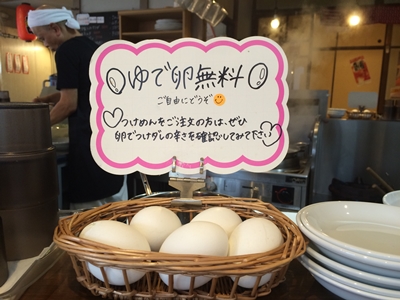 ゆで卵無料
ご自由にどうぞ
つけめんをご注文の方は、ぜひ
卵でつけダレの辛さを確認してみて下さい